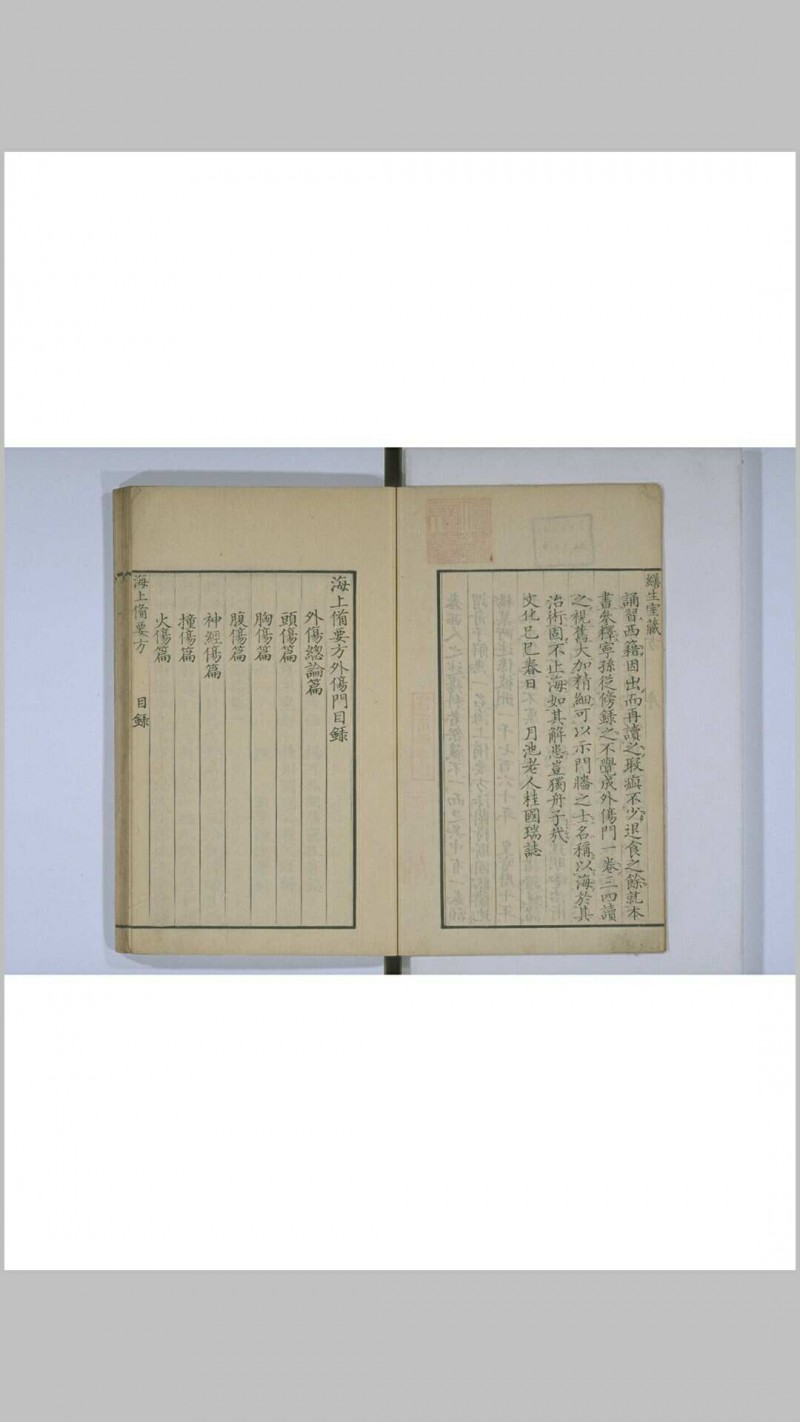 繕生室藏
誦習西籍因出而再讀之瑕瑜不少退食之餘就本
書參釋寧孫從傍錄之不覺成外傷門一卷三四讀
之視舊大加精細可以示門牆之士名稱以海於其
治術固不止海如其解患豈獨舟子哉
文化己巳春日 月池老人桂國瑞誌
海上備要方外傷門目録
外傷總論篇
頭傷篇
胸傷篇
腹傷篇
神經傷篇
撞傷篇
火傷篇
海上備要方 目録